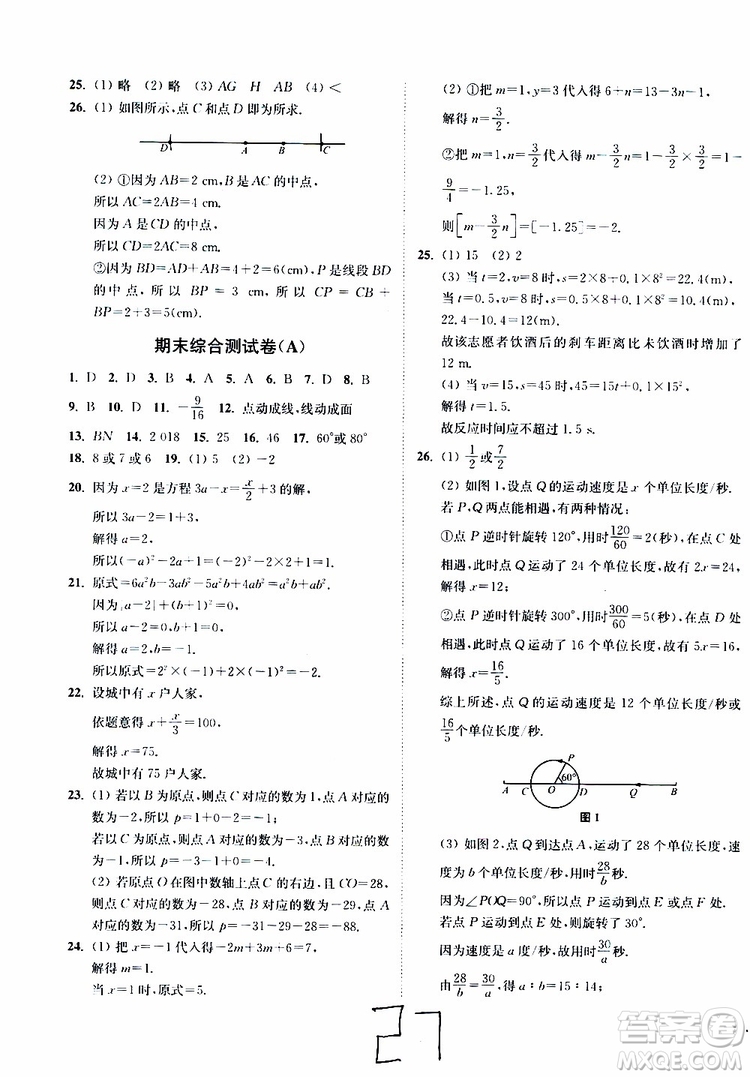 25. (1) 略 (2) 略 (3) AG H AB (4) <
26. (1) 如图所示,点 C 和点 D 即为所求.
D A B C
(2) ①因为 AB=2 cm,B 是 AC 的中点,
所以 AC=2AB=4 cm.
因为 A 是 CD 的中点,
所以 CD=2AC=8 cm.
②因为 BD=AD+AB=4+2=6(cm),P 是线段 BD
的中点,所以 BP=3 cm,所以 CP=CB+
BP=2+3=5(cm).
期末综合测试卷(A)
1. D 2. D 3. B 4. A 5. A 6. D 7. D 8. B
9. B 10. D 11. -9/16 12. 点动成线,线动成面
13. BN 14. 2 018 15. 25 16. 46 17. 60°或 80°
18. 8 或 7 或 6 19. (1) 5 (2) -2
20. 因为 x=2 是方程 3a-x=x/2+3 的解,
所以 3a-2=1+3,
解得 a=2,
所以(-a)²-2a+1=4-4+1=1.
21. 原式=6a²b-3ab²-5a²b+4ab²=a²b+ab².
因为|a-2|+(b+1)²=0,
所以 a-2=0,b+1=0,
解得 a=2,b=-1.
所以原式=2²×(-1)+2×(-1)²=-2.
22. 设城中有 x 户人家,
依题意得 x+x/3=100,
解得 x=75.
故城中有 75 户人家.
23. (1) 若以 B 为原点,则点 C 对应的数为 1,点 A 对应的
数为-2,所以 p=1+0-2=-1;
若以 C 为原点,则点 A 对应的数为-3,点 B 对应的数
为-1,所以 p=-3-1+0=-4.
(2) 若原点 O 在图中数轴上点 C 的右边,且 CO=28,
则点 C 对应的数为-28,点 B 对应的数为-29,点 A
对应的数为-31,所以 p=-31-29-28=-88.
24. (1) 把 x=-1 代入得-2+m=-4+3,
解得 m=1.
当 x=3 时,原式=5.
(2) ①把 m=1,y=3 代入得 6+n=13-3n-1,
解得 n=3/2.
②把 m=1,n=3/2 代入得 m-3/2 n=1-3/2×3/2=1-
9/4=-1.25,
则[m-3/2 n]=[-1.25]=-2.
25. (1) 15 (2) 2
(3) 当 t=2,v=8 时,s=2×8+0.1×8²=22.4(m),
当 t=0.5,v=8 时,s=0.5×8+0.1×8²=10.4(m),
22.4-10.4=12(m).
故该志愿者饮酒后的刹车距离比未饮酒时增加了
12 m.
(4) 当 v=15,s=45 时,45=15t+0.1×15²,
解得 t=1.5.
故反应时间应不超过 1.5 s.
26. (1) 1/2 或 7/2
(2) 如图 1,设点 Q 的运动速度是 x 个单位长度/秒.
若 P、Q 两点能相遇,则有两种情况:
①点 P 逆时针旋转 120°,用时 120/60=2(秒),在点 C 处
相遇,此时点 Q 运动了 24 个单位长度,故 2x=24,
解得 x=12;
②点 P 逆时针旋转 300°,用时 300/60=5(秒),在点 D 处
相遇,此时点 Q 运动了 16 个单位长度,故 5x=16,
解得 x=16/5.
综上所述,点 Q 的运动速度是 12 个单位长度/秒或
16/5 个单位长度/秒.
P
60°
A C O D Q B
图 1
(3) 如图 2,点 Q 到达点 A,运动了 28 个单位长度,速
度为 b 个单位长度/秒,则用时 28/b 秒.
因为∠POQ=90°,所以点 P 运动到点 E 处.
若点 P 运动到点 E 处,则旋转了 30°.
因为速度是 a 度/秒,故用时 30/a 秒.
由 28/b=30/a,得 a:b=15:14;
27
答案圈
MXQE.COM